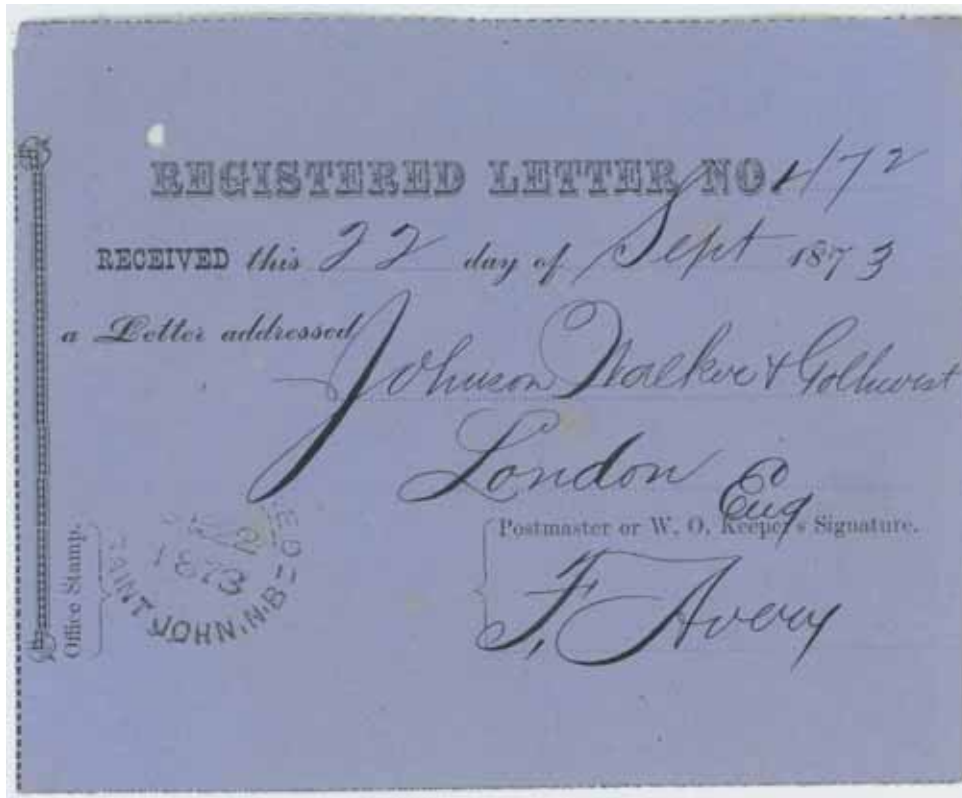 REGISTERED LETTER NO. 472
RECEIVED this 22 day of Sept 1873
a Letter addressed Johnson Walker & Golhurst
London
Eng
Postmaster or W. O. Keeper's Signature.
F. Avery
Office Stamp.
1873
SAINT JOHN, N.B.